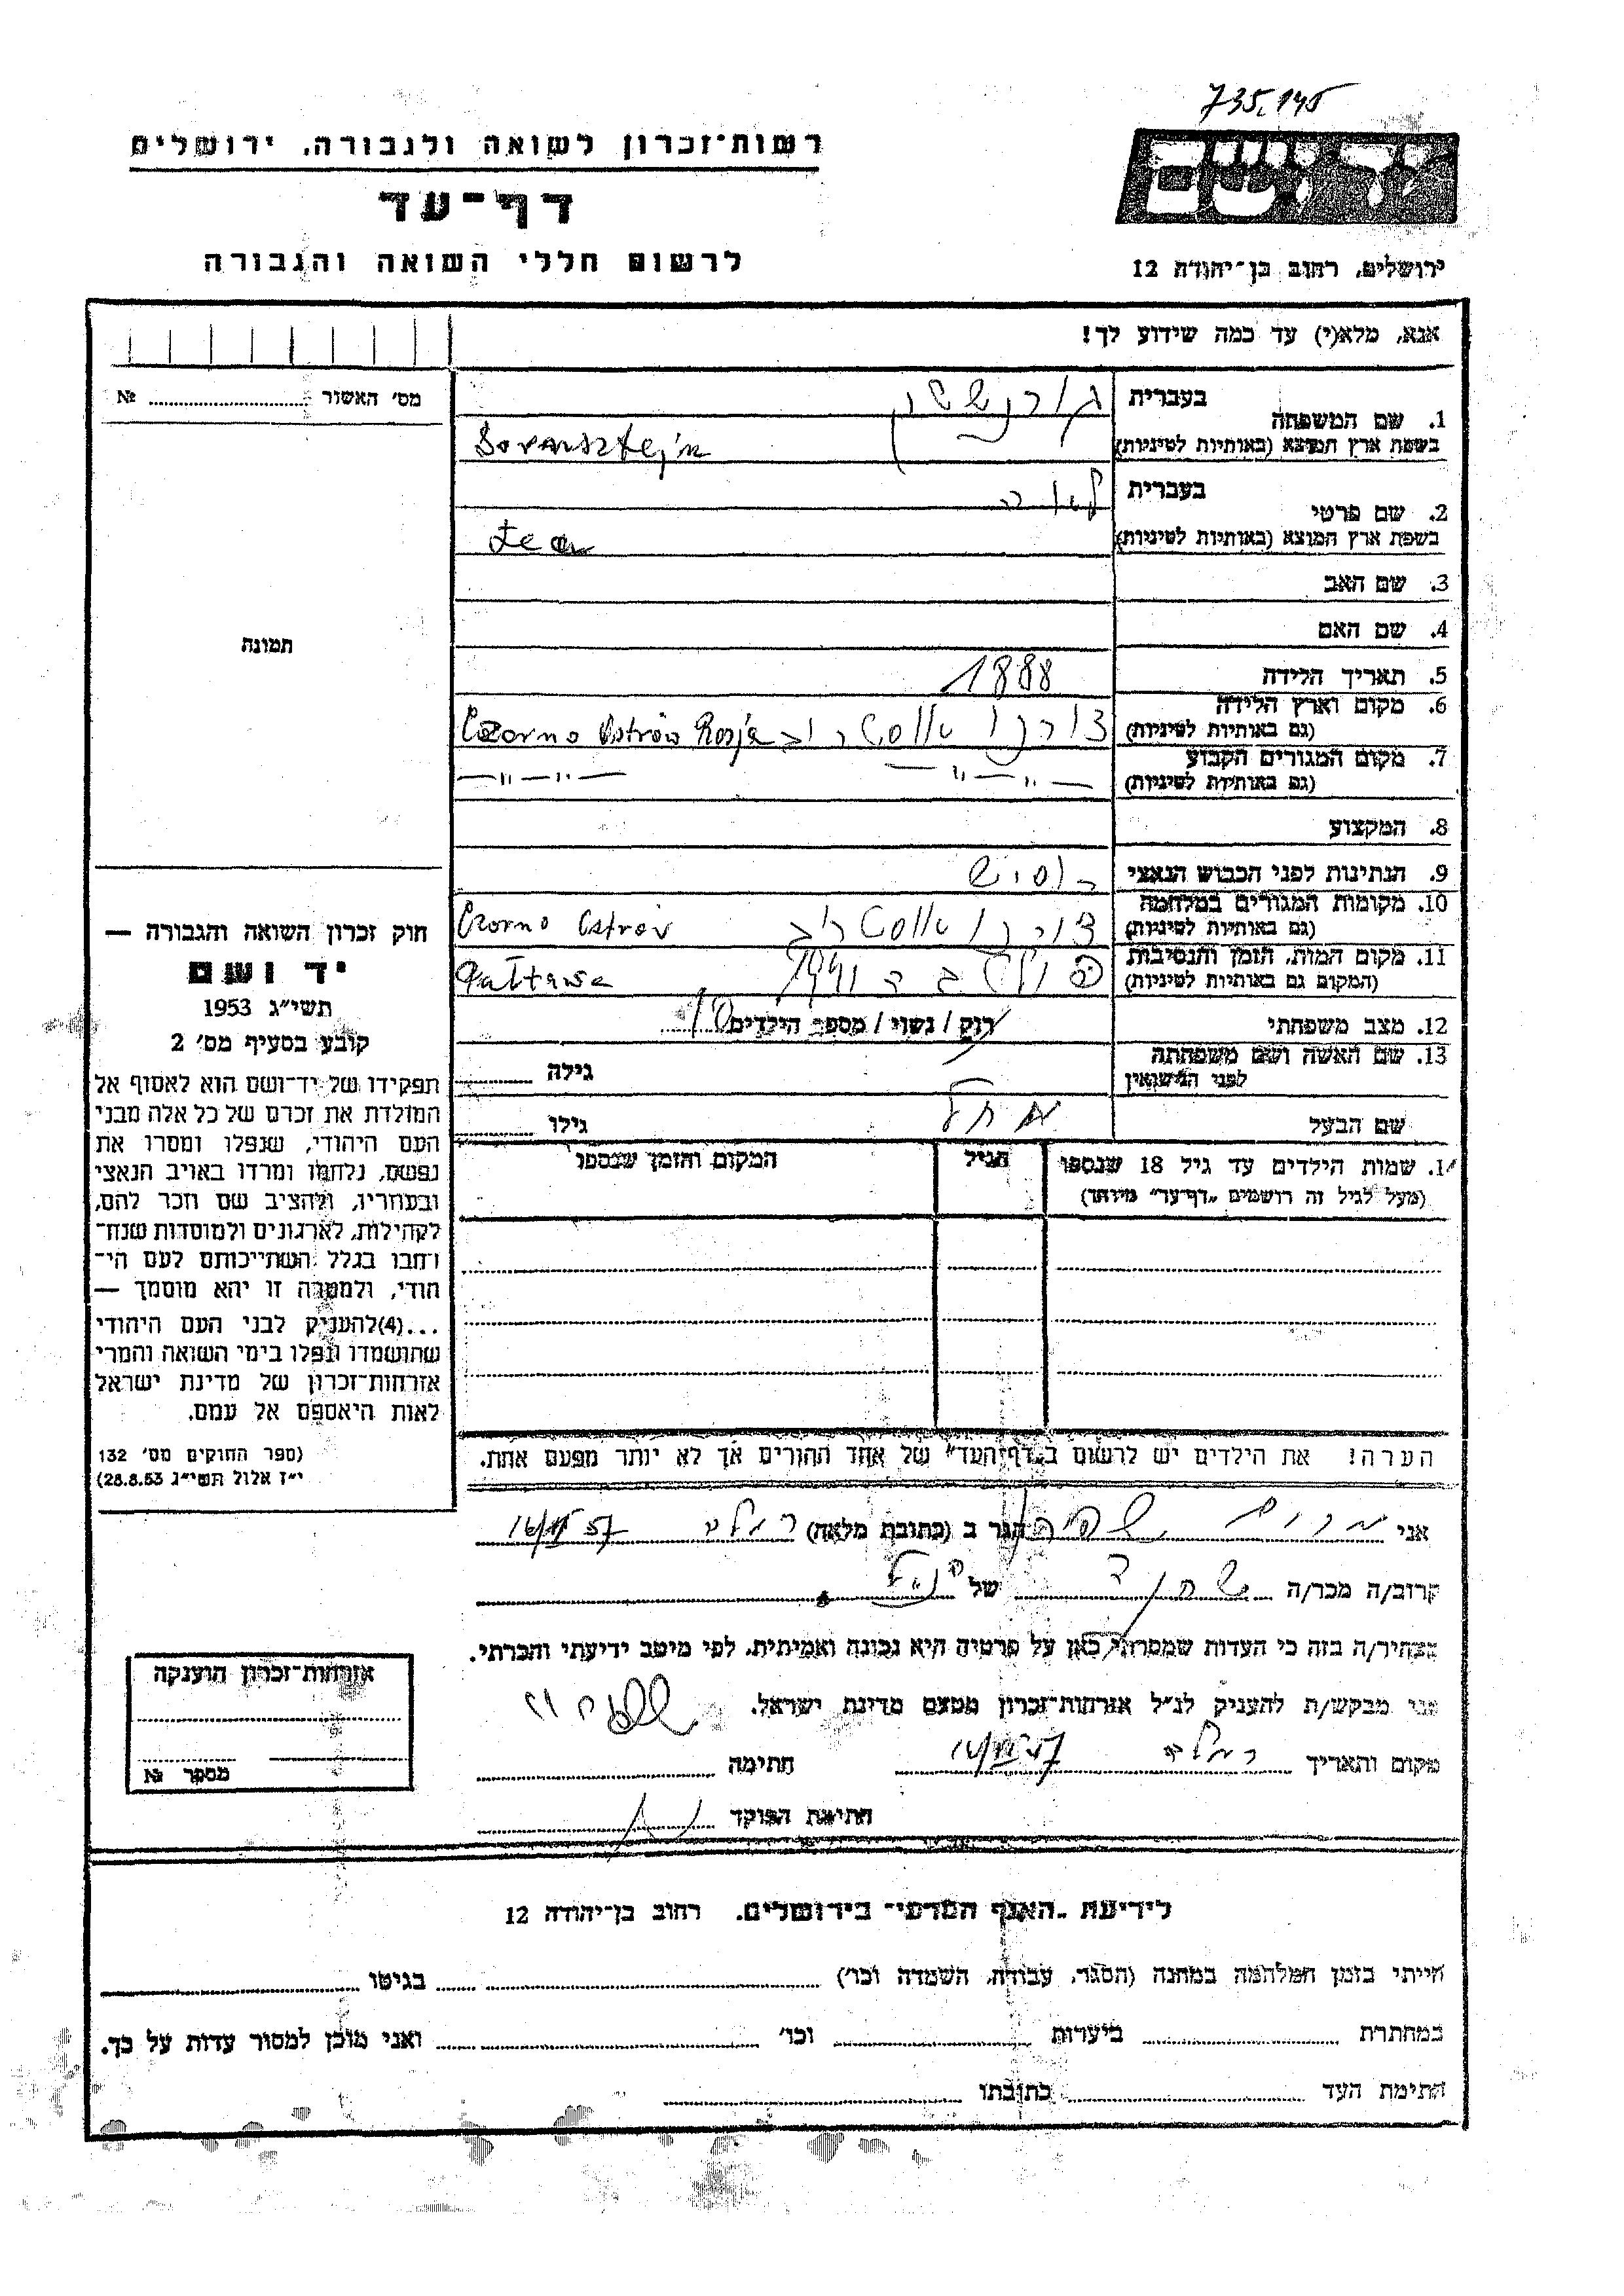 735,145
רשות־זכרון לשואה ולגבורה, ירושלים
דף־עד
לרשום חללי השואה והגבורה
יד ושם
ירושלים, רחוב בן־יהודה 12
אנא, מלא(י) עד כמה שידוע לך!
מס׳ האשור № 
1. שם המשפחה
בעברית
בשפת ארץ המוצא (באותיות לטיניות)
2. שם פרטי
בעברית
בשפת ארץ המוצא (באותיות לטיניות) Lea
3. שם האב
4. שם האם
5. תאריך הלידה 1888
6. מקום וארץ הלידה
(גם באותיות לטיניות) Czorno Ostrów Rosja
7. מקום המגורים הקבוע
(גם באותיות לטיניות) — " — " —
8. המקצוע
9. הנתינות לפני הכבוש הנאצי
10. מקומות המגורים במלחמה
(גם באותיות לטיניות) Czorno Ostrów
11. מקום המות, הזמן והנסיבות
(המקום גם באותיות לטיניות) 1941 Połtawa
12. מצב משפחתי רווק / נשוי / מספר הילדים 10
13. שם האשה ושם משפחתה
לפני הנישואין
גילה
שם הבעל
גילו
תמונה
חוק זכרון השואה והגבורה —
יד ושם
תשי״ג 1953
קובע בסעיף מס׳ 2
תפקידו של יד־ושם הוא לאסוף אל
המולדת את זכרם של כל אלה מבני
העם היהודי, שנפלו ומסרו את
נפשם, נלחמו ומרדו באויב הנאצי
ובעוזריו, ולהציב שם וזכר להם,
לקהילות, לארגונים ולמוסדות שנח־
רבו בגלל השתייכותם לעם הי־
הודי, ולמטרה זו יהא מוסמך —
...(4)להעניק לבני העם היהודי
שהושמדו ונפלו בימי השואה והמרי
אזרחות־זכרון של מדינת ישראל
לאות היאספם אל עמם.
(ספר החוקים מס׳ 132
י״ז אלול תשי״ג 28.8.53)
14. שמות הילדים עד גיל 18 שנספו
(מעל לגיל זה רושמים „דף־עד״ מיוחד)
הגיל
המקום והזמן שנספו
הערה! את הילדים יש לרשום ב„דף־העד״ של אחד ההורים אך לא יותר מפעם אחת.
אני מרים הגר ב (כתובת מלאה) רמלה
קרוב/ה מכר/ה של
מצהיר/ה בזה כי העדות שמסרתי כאן על פרטיה היא נכונה ואמיתית, לפי מיטב ידיעתי והכרתי.
אני מבקש/ת להעניק לנ״ל אזרחות־זכרון מטעם מדינת ישראל.
מקום ותאריך רמלה חתימה
חתימת הפוקד
אזרחות־זכרון הוענקה
מספר №
לידיעת „האגף המדעי״ בירושלים, רחוב בן־יהודה 12
הייתי בזמן המלחמה במחנה (הסגר, עבודה, השמדה וכו׳) בגיטו
במחתרת ביערות וכו׳ ואני מוכן למסור עדות על כך.
חתימת העד כתובתו